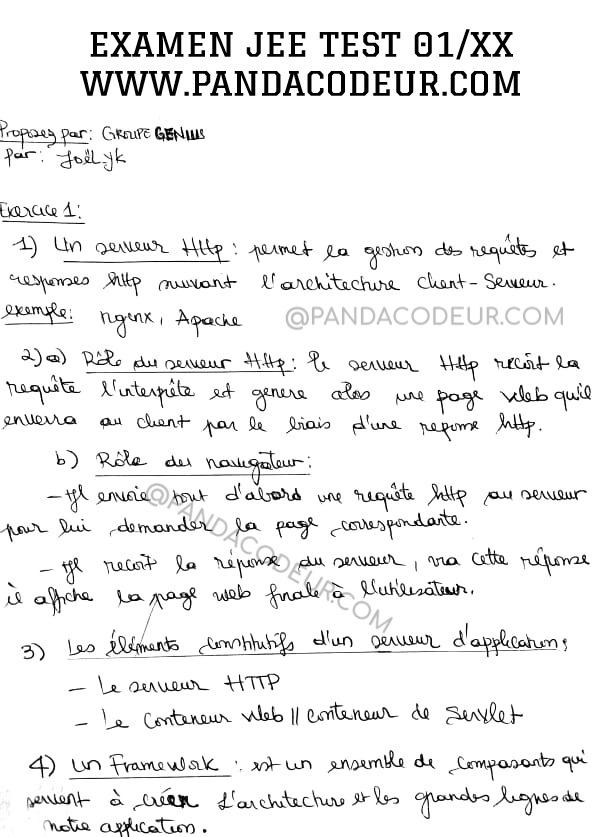 EXAMEN JEE TEST 01/XX
WWW.PANDACODEUR.COM
Proposez par: GROUPE GENIUS
par: Joël yk
Exercice 1:
1) Un serveur Http: permet la gestion des requêtes et
responses http suivant l'architecture client-Serveur.
exemple: nginx, Apache
@PANDACODEUR.COM
2) a) Rôle du serveur Http: le serveur Http recoit la
requête l'interprête et genere alos une page Web qu'il
enverra au client par le biais d'une reponse http.
b) Rôle des navigateur:
- Il envoie tout d'abord une requête http au serveur
pour lui demander la page correspondante.
@PANDACODEUR.COM
- Il recoit la réponse du serveur, via cette réponse
il affiche la page web finale à l'utilisateur.
3) Les éléments constitutifs d'un serveur d'application:
- Le serveur HTTP
- Le Conteneur Web // conteneur de Servlet
4) un Framework: est un ensemble de composants qui
servent à créer l'architecture et les grandes lignes de
notre application.